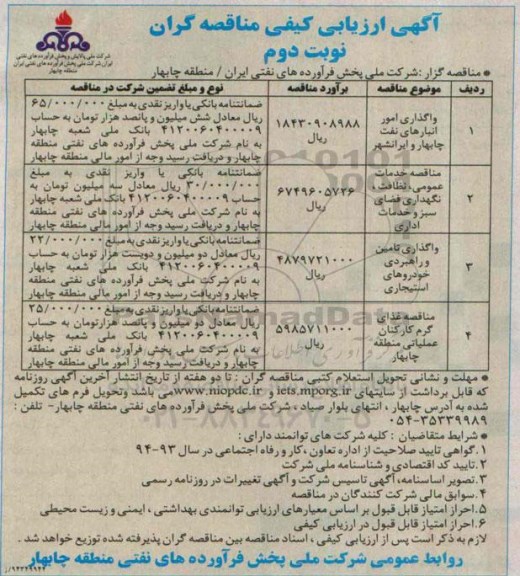 آگهی ارزیابی کیفی مناقصه گران
نوبت دوم
شرکت ملی پالایش و پخش فرآورده های نفتی ایران
شرکت ملی پخش فرآورده های نفتی ایران
منطقه چابهار
● مناقصه گزار :شرکت ملی پخش فرآورده های نفتی ایران / منطقه چابهار
ردیف موضوع مناقصه برآورد مناقصه نوع و مبلغ تضمین شرکت در مناقصه
۱
واگذاری امور
انبارهای نفت
چابهار و ایرانشهر
۱۸۴۳۰۹۰۸۹۸۸
ریال
ضمانتنامه بانکی یا واریز نقدی به مبلغ ۶۵/۰۰۰/۰۰۰
ریال معادل شش میلیون و پانصد هزار تومان به حساب
۴۱۲۰۰۶۰۴۰۰۰۰۹ بانک ملی شعبه چابهار
به نام شرکت ملی پخش فرآورده های نفتی منطقه
چابهار و دریافت رسید وجه از امور مالی منطقه چابهار
۲
مناقصه خدمات
عمومی، نظافت
نگهداری فضای
سبز و خدمات
اداری
۶۷۴۹۶۰۵۷۳۶
ریال
ضمانتنامه بانکی یا واریز نقدی به مبلغ
۳۰/۰۰۰/۰۰۰ ریال معادل سه میلیون تومان به
حساب ۴۱۲۰۰۶۰۴۰۰۰۰۹ بانک ملی شعبه چابهار
به نام شرکت ملی پخش فرآورده های نفتی منطقه
چابهار و دریافت رسید وجه از امور مالی منطقه چابهار
۳
واگذاری تامین
و راهبردی
خودروهای
استیجاری
۴۸۷۹۷۲۱۰۰۰
ریال
ضمانتنامه بانکی یا واریز نقدی به مبلغ ۲۲/۰۰۰/۰۰۰
ریال معادل دو میلیون و دویست هزار تومان به حساب
۴۱۲۰۰۶۰۴۰۰۰۰۹ بانک ملی شعبه چابهار
به نام شرکت ملی پخش فرآورده های نفتی منطقه
چابهار و دریافت رسید وجه از امور مالی منطقه چابهار
۴
مناقصه غذای
گرم کارکنان
عملیاتی منطقه
چابهار
۵۹۸۵۷۱۱۰۰۰
ریال
ضمانتنامه بانکی یا واریز نقدی به مبلغ ۲۵/۰۰۰/۰۰۰
ریال معادل دو میلیون و پانصد هزار تومان به حساب
۴۱۲۰۰۶۰۴۰۰۰۰۹ بانک ملی شعبه چابهار
به نام شرکت ملی پخش فرآورده های نفتی منطقه
چابهار و دریافت رسید وجه از امور مالی منطقه چابهار
● مهلت و نشانی تحویل استعلام کتبی مناقصه گران : تا دو هفته از تاریخ انتشار آخرین آگهی روزنامه
که قابل برداشت از سایتهای iets.mporg.ir و www.niopdc.ir می باشد وتحویل فرم های تکمیل
شده به آدرس چابهار ، انتهای بلوار صیاد ، شرکت ملی پخش فرآورده های نفتی منطقه چابهار- تلفن :
۰۵۴-۳۵۳۳۹۹۸۹
● شرایط متقاضیان : کلیه شرکت های توانمند دارای :
۱.گواهی تایید صلاحیت از اداره تعاون ،کار و رفاه اجتماعی در سال ۹۳-۹۴
۲.تایید کد اقتصادی و شناسنامه ملی شرکت
۳.تصویر اساسنامه، آگهی تاسیس شرکت و آگهی تغییرات در روزنامه رسمی
۴.سوابق مالی شرکت کنندگان در مناقصه
۵.احراز امتیاز قابل قبول بر اساس معیارهای ارزیابی توانمندی بهداشتی ، ایمنی و زیست محیطی
۶.احراز امتیاز قابل قبول در ارزیابی کیفی
لازم به ذکر است پس از ارزیابی کیفی ، اسناد مناقصه بین مناقصه گران پذیرفته شده توزیع خواهد شد .
روابط عمومی شرکت ملی پخش فرآورده های نفتی منطقه چابهار